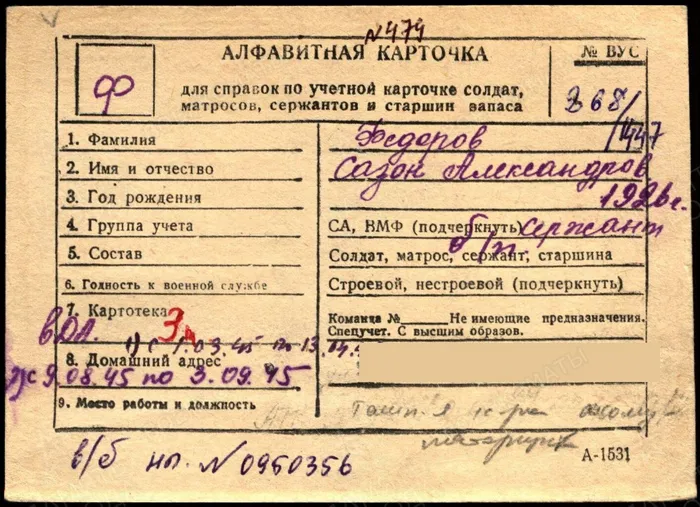 N474
АЛФАВИТНАЯ КАРТОЧКА
№ ВУС
Ф
для справок по учетной карточке солдат,
матросов, сержантов и старшин запаса
868/
/447
1. Фамилия
Федоров
2. Имя и отчество
Сазон Александров
3. Год рождения
1926 г.
4. Группа учета
СА, ВМФ (подчеркнуть) сержант
5. Состав
б/п
Солдат, матрос, сержант, старшина
6. Годность к военной службе
Строевой, нестроевой (подчеркнуть)
7. Картотека
Команка №______ Не имеющие предназначения.
Спецучет. С высшим образов.
в ДА.
1) с 1.03.45 по 13.04.
8. Домашний адрес
2) с 9.08.45 по 3.09.45
9. Место работы и должность
в/б нп. N0950356
А-1531